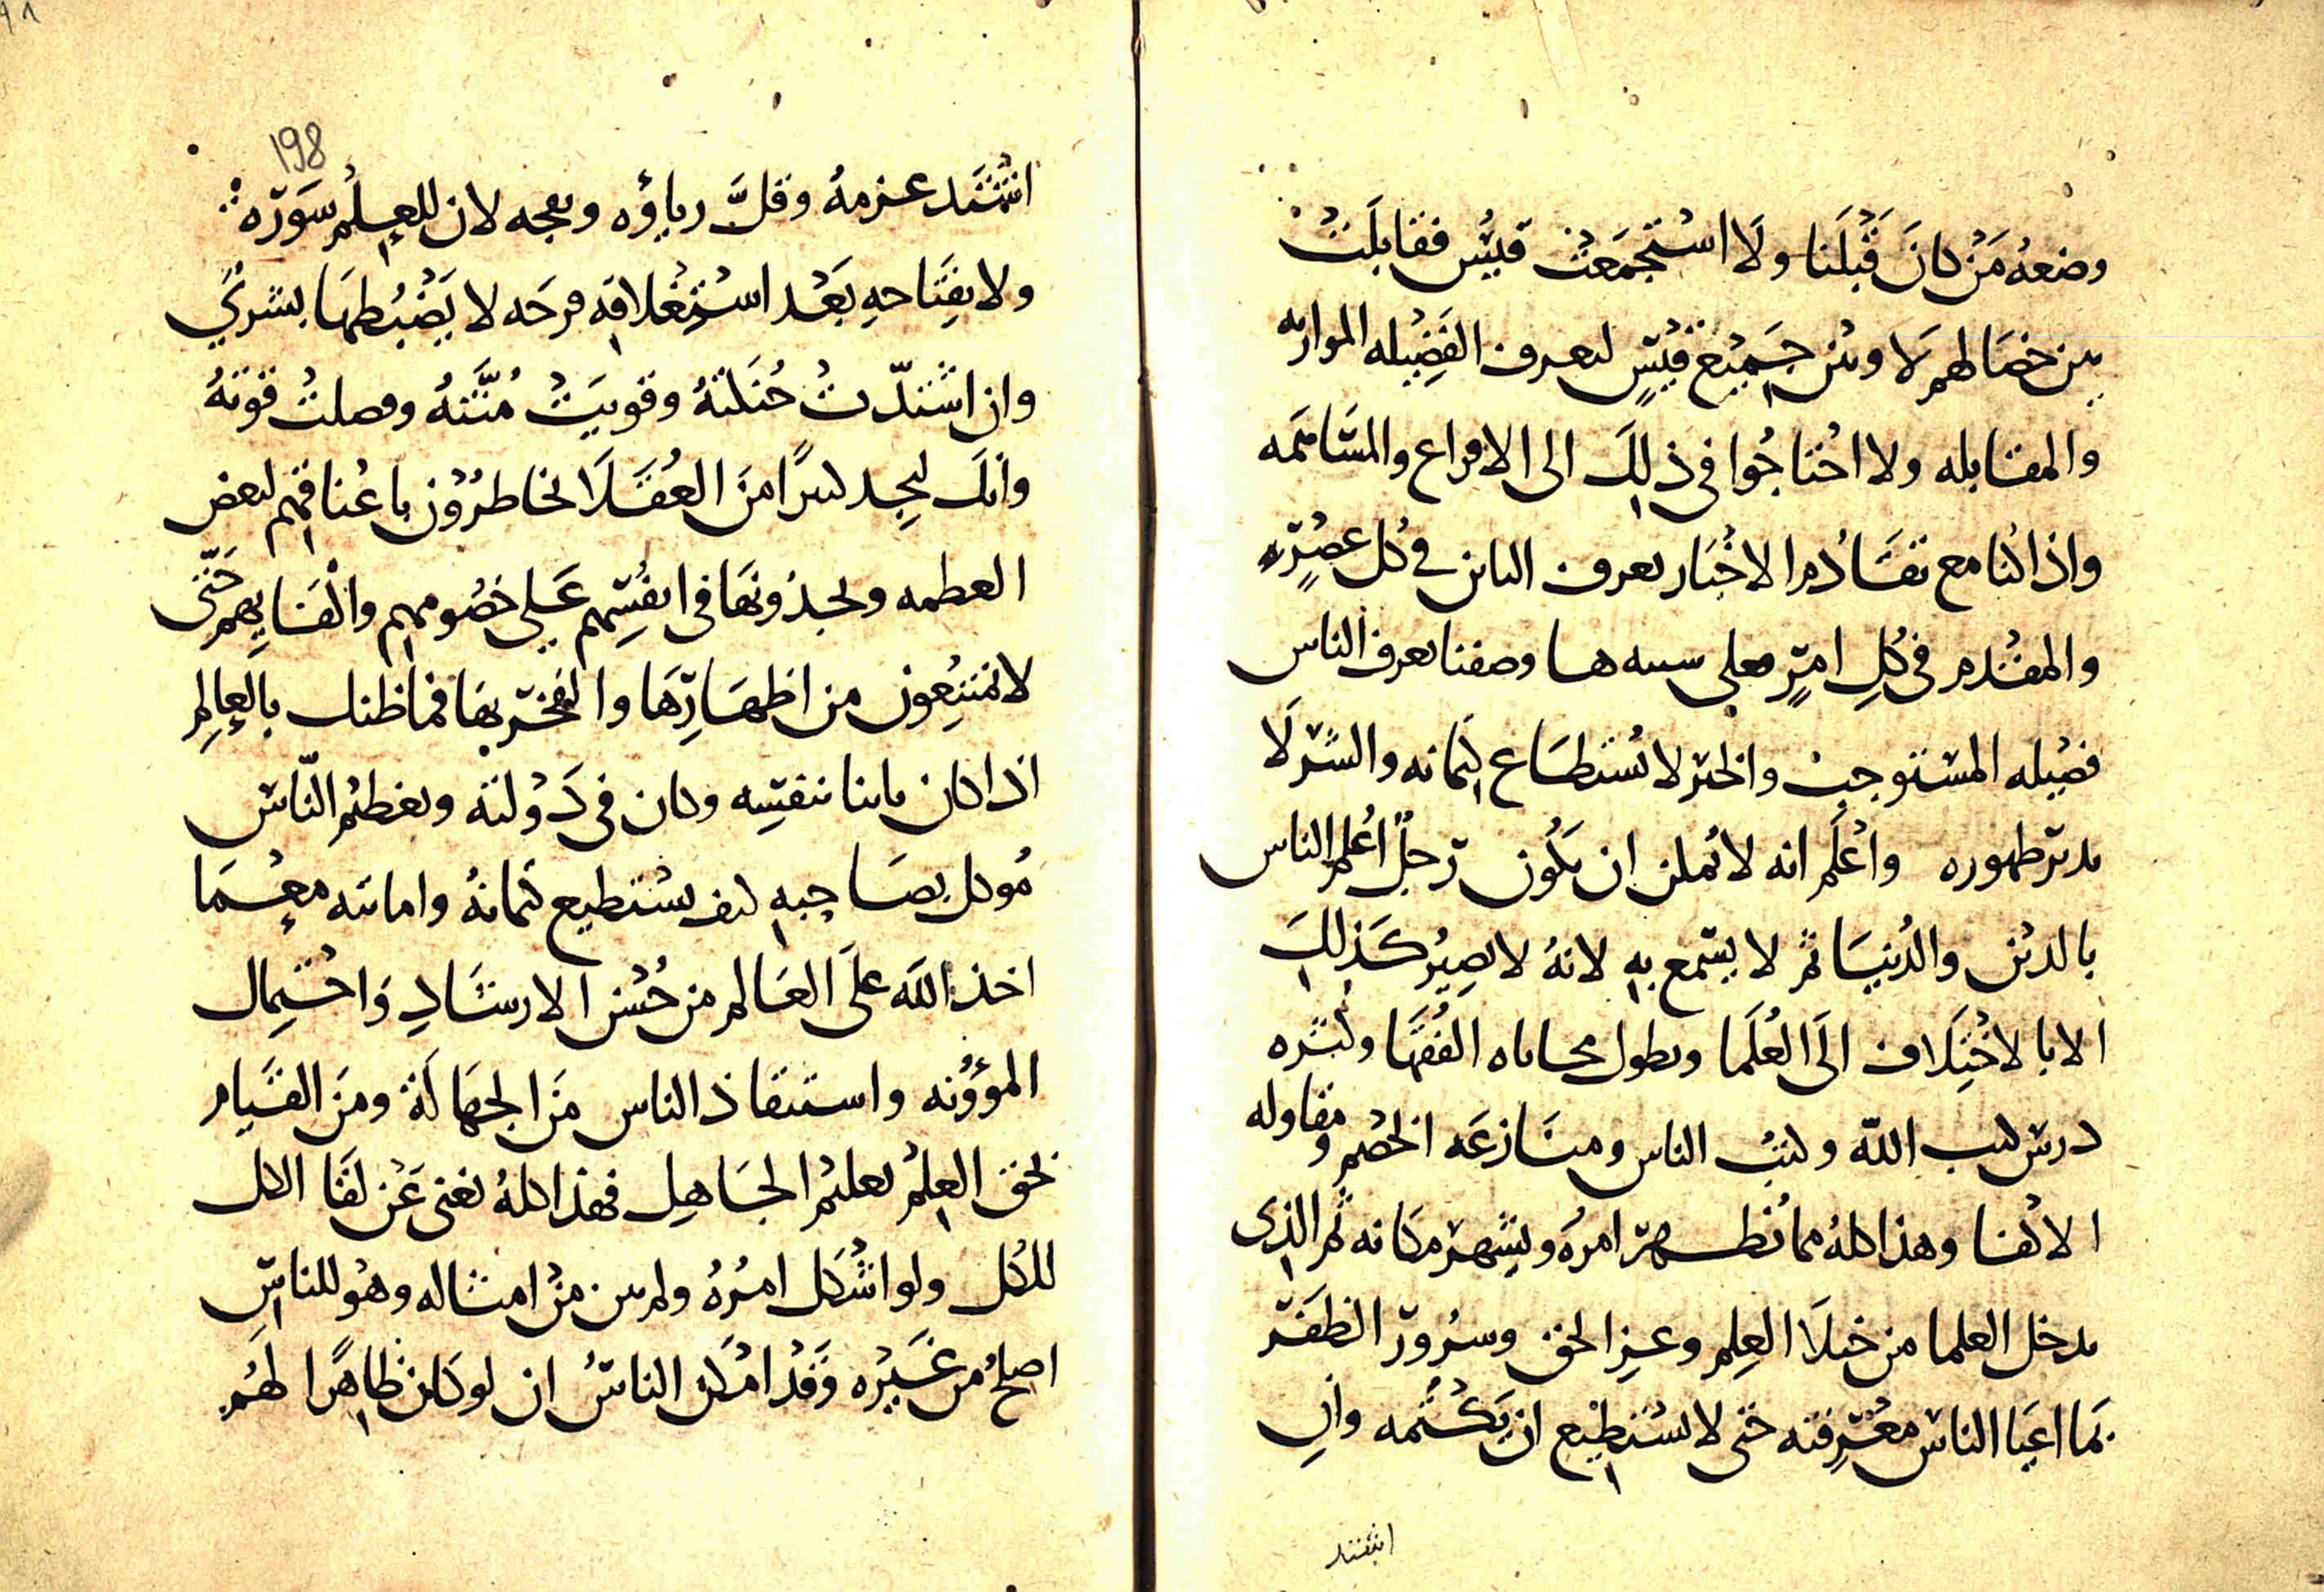 وضعه من كان قبلنا ولا استجمعت قيس فقابلت
بين خصالهم ولا وبين جميع قيس ليعرف الفضيله الموازنه
والمقابله ولا احتاجوا في ذلك الى الاقراع والمساهمه
واذا كنا مع تقادم الاخبار نعرف البائن في كل عصر
والمقدم في كل امر فعلى سبيه ها وصفنا يعرف الناس
فضيله المستوجب والخير لا يستطاع كتمانه والستر لا
ظهوره واعلم انه لا يمكن ان يكون رجل اعلم الناس
بالدين والدنيا ثم لا يسمع به لانه لا يصير كذلك
الا بالاختلاف الى العلما وبطول مجاثاه الفقها وكثره
درس كتب الله وكتب الناس ومنازعه الخصم ومقاوله
الاكفا وهذا كله مما يظهر امره ويشهر مكانه ثم الذي
يدخل العلما من خيلا العلم وعز الحق وسرور الظفر
بما اعيا الناس معرفته حتى لا يستطيع ان يكتمه وان
اشتد
198
اشتد عزمه وقل رياؤه ونفجه لان للعلم سوره
ولانفتاحه بعد استغلاقه فرحه لا يضبطها بشري
وان اشتدت حنكته وقويت منته وفصلت قوته
وانك لتجد كثيرا من العقلا يخاطرون باعناقهم لبعض
العظمه ويجدونها في انفسهم على خصومهم واكفايهم حتى
لا يمتنعون من اظهارها والفخر بها فما ظنك بالعالم
اذا كان بائنا بنفسه وكان في دولته وتعظيم الناس
موكل بصاحبه كيف يستطيع كتمانه واماتته مع ما
اخذ الله على العالم من حسن الارشاد واحتمال
المؤونه واستنقاذ الناس من الجهالة ومن القيام
بحق العلم تعليم الجاهل فهذا كله يغني عن لقا الكل
للكل ولو اشكل امره ولم يبن من امثاله وهو للناس
اصلح من غيره وقد امكن الناس ان لو كان ظاهرا لهم